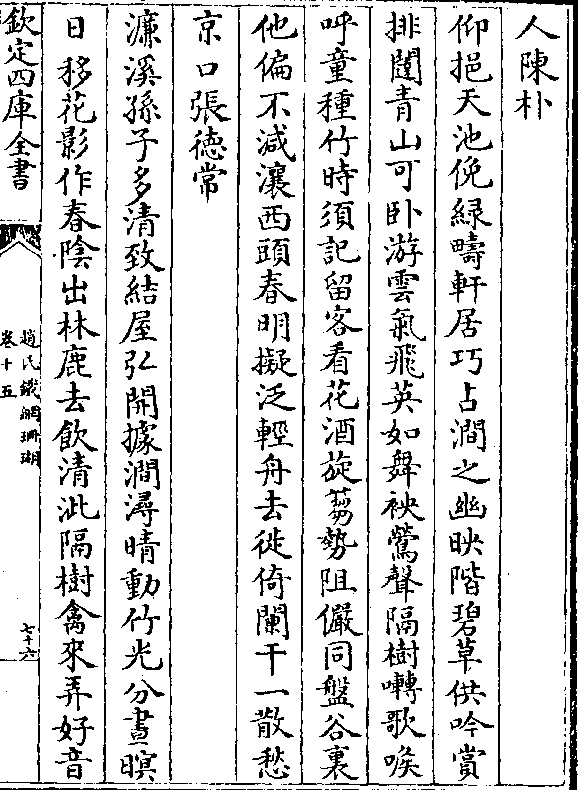 人陳朴
仰挹天池俛緑疇軒居巧占澗之幽映階碧草供吟賞
排闥青山可卧游雲氣飛英如舞袂鶯聲隔樹囀歌喉
呼童種竹時須記留客看花酒旋篘勢阻儼同盤谷裏
他偏不減瀼西頭春明擬泛輕舟去徙倚闌干一散愁
京口張徳常
濂溪孫子多清致結屋弘開據澗潯晴動竹光分晝暝
日移花影作春陰出林鹿去飲清泚隔樹禽來弄好音
欽定四庫全書
趙氏鐵網珊瑚
卷十五
七十六